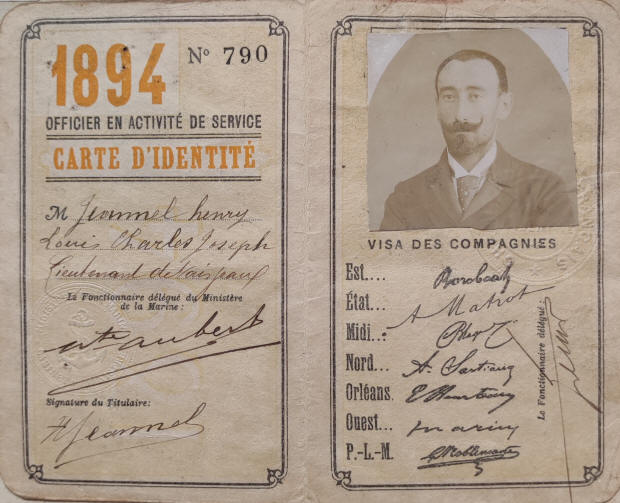 1894 Nº 790
OFFICIER EN ACTIVITÉ DE SERVICE
CARTE D'IDENTITÉ
M Jeannel henry
Louis Charles Joseph
Lieutenant de Vaisseau
Le Fonctionnaire délégué du Ministère
de la Marine:
Signature du Titulaire:
H Jeannel
VISA DES COMPAGNIES
Est....
État... A Matrot
Midi..
Nord... A. Sartiaux
Orléans.
Ouest... marin
P.-L.-M. Noblemaire
Le Fonctionnaire délégué: